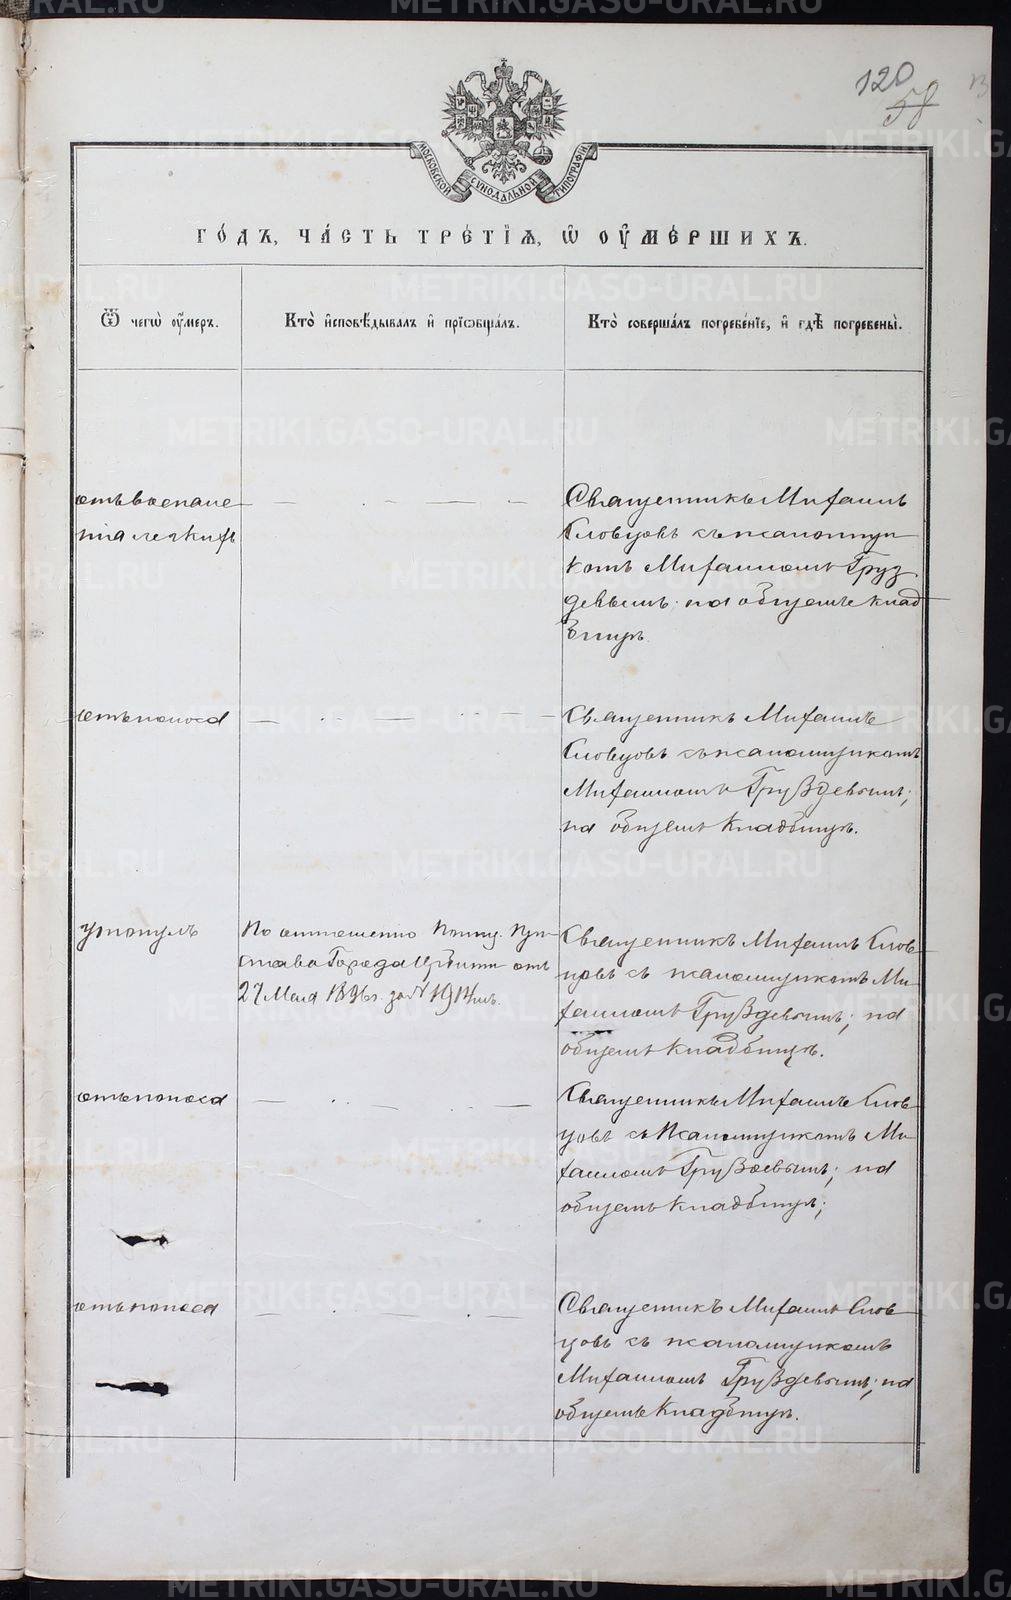 120
58
МОСКОВСКОЙ СѴНОДАЛЬНОЙ ТИПОГРАФІИ
ГО́ДЪ, ЧА́СТЬ ТРЕ́ТІѦ, Ѡ҆ ОУ҆МЕ́РШИХЪ.
Ѿ чегѡ̀ оу҆́меръ.
Кто̀ и҆сповѣ́дывалъ и҆ прїѡбща́лъ.
Кто̀ соверша́лъ погребе́нїе, и҆ гдѣ̀ погребены̀.
отъ воспале-
нія легкихъ
Священникъ Михаилъ
Словцовъ съ псаломщи
комъ Михаиломъ Груз
девымъ; на общемъ клад
бищѣ
отъ поноса
Священникъ Михаилъ
Словцовъ съ псаломщикомъ
Михаиломъ Груздевымъ;
на общемъ кладбищѣ.
утонулъ
По отношенію Полиц. При-
става Города Ирбити отъ
27 Мая 1896 г. за №
Священникъ Михаилъ Слов-
цовъ съ псаломщикомъ Ми-
хаиломъ Груздевымъ; на
общемъ кладбищѣ.
отъ поноса
Священникъ Михаилъ Слов-
цовъ съ псаломщикомъ Ми-
хаиломъ Груздевымъ; на
общемъ кладбищѣ;
отъ поноса
Священникъ Михаилъ Слов-
цовъ съ псаломщикомъ
Михаиломъ Груздевымъ; на
общемъ кладбищѣ.
METRIKI.GASO-URAL.RU